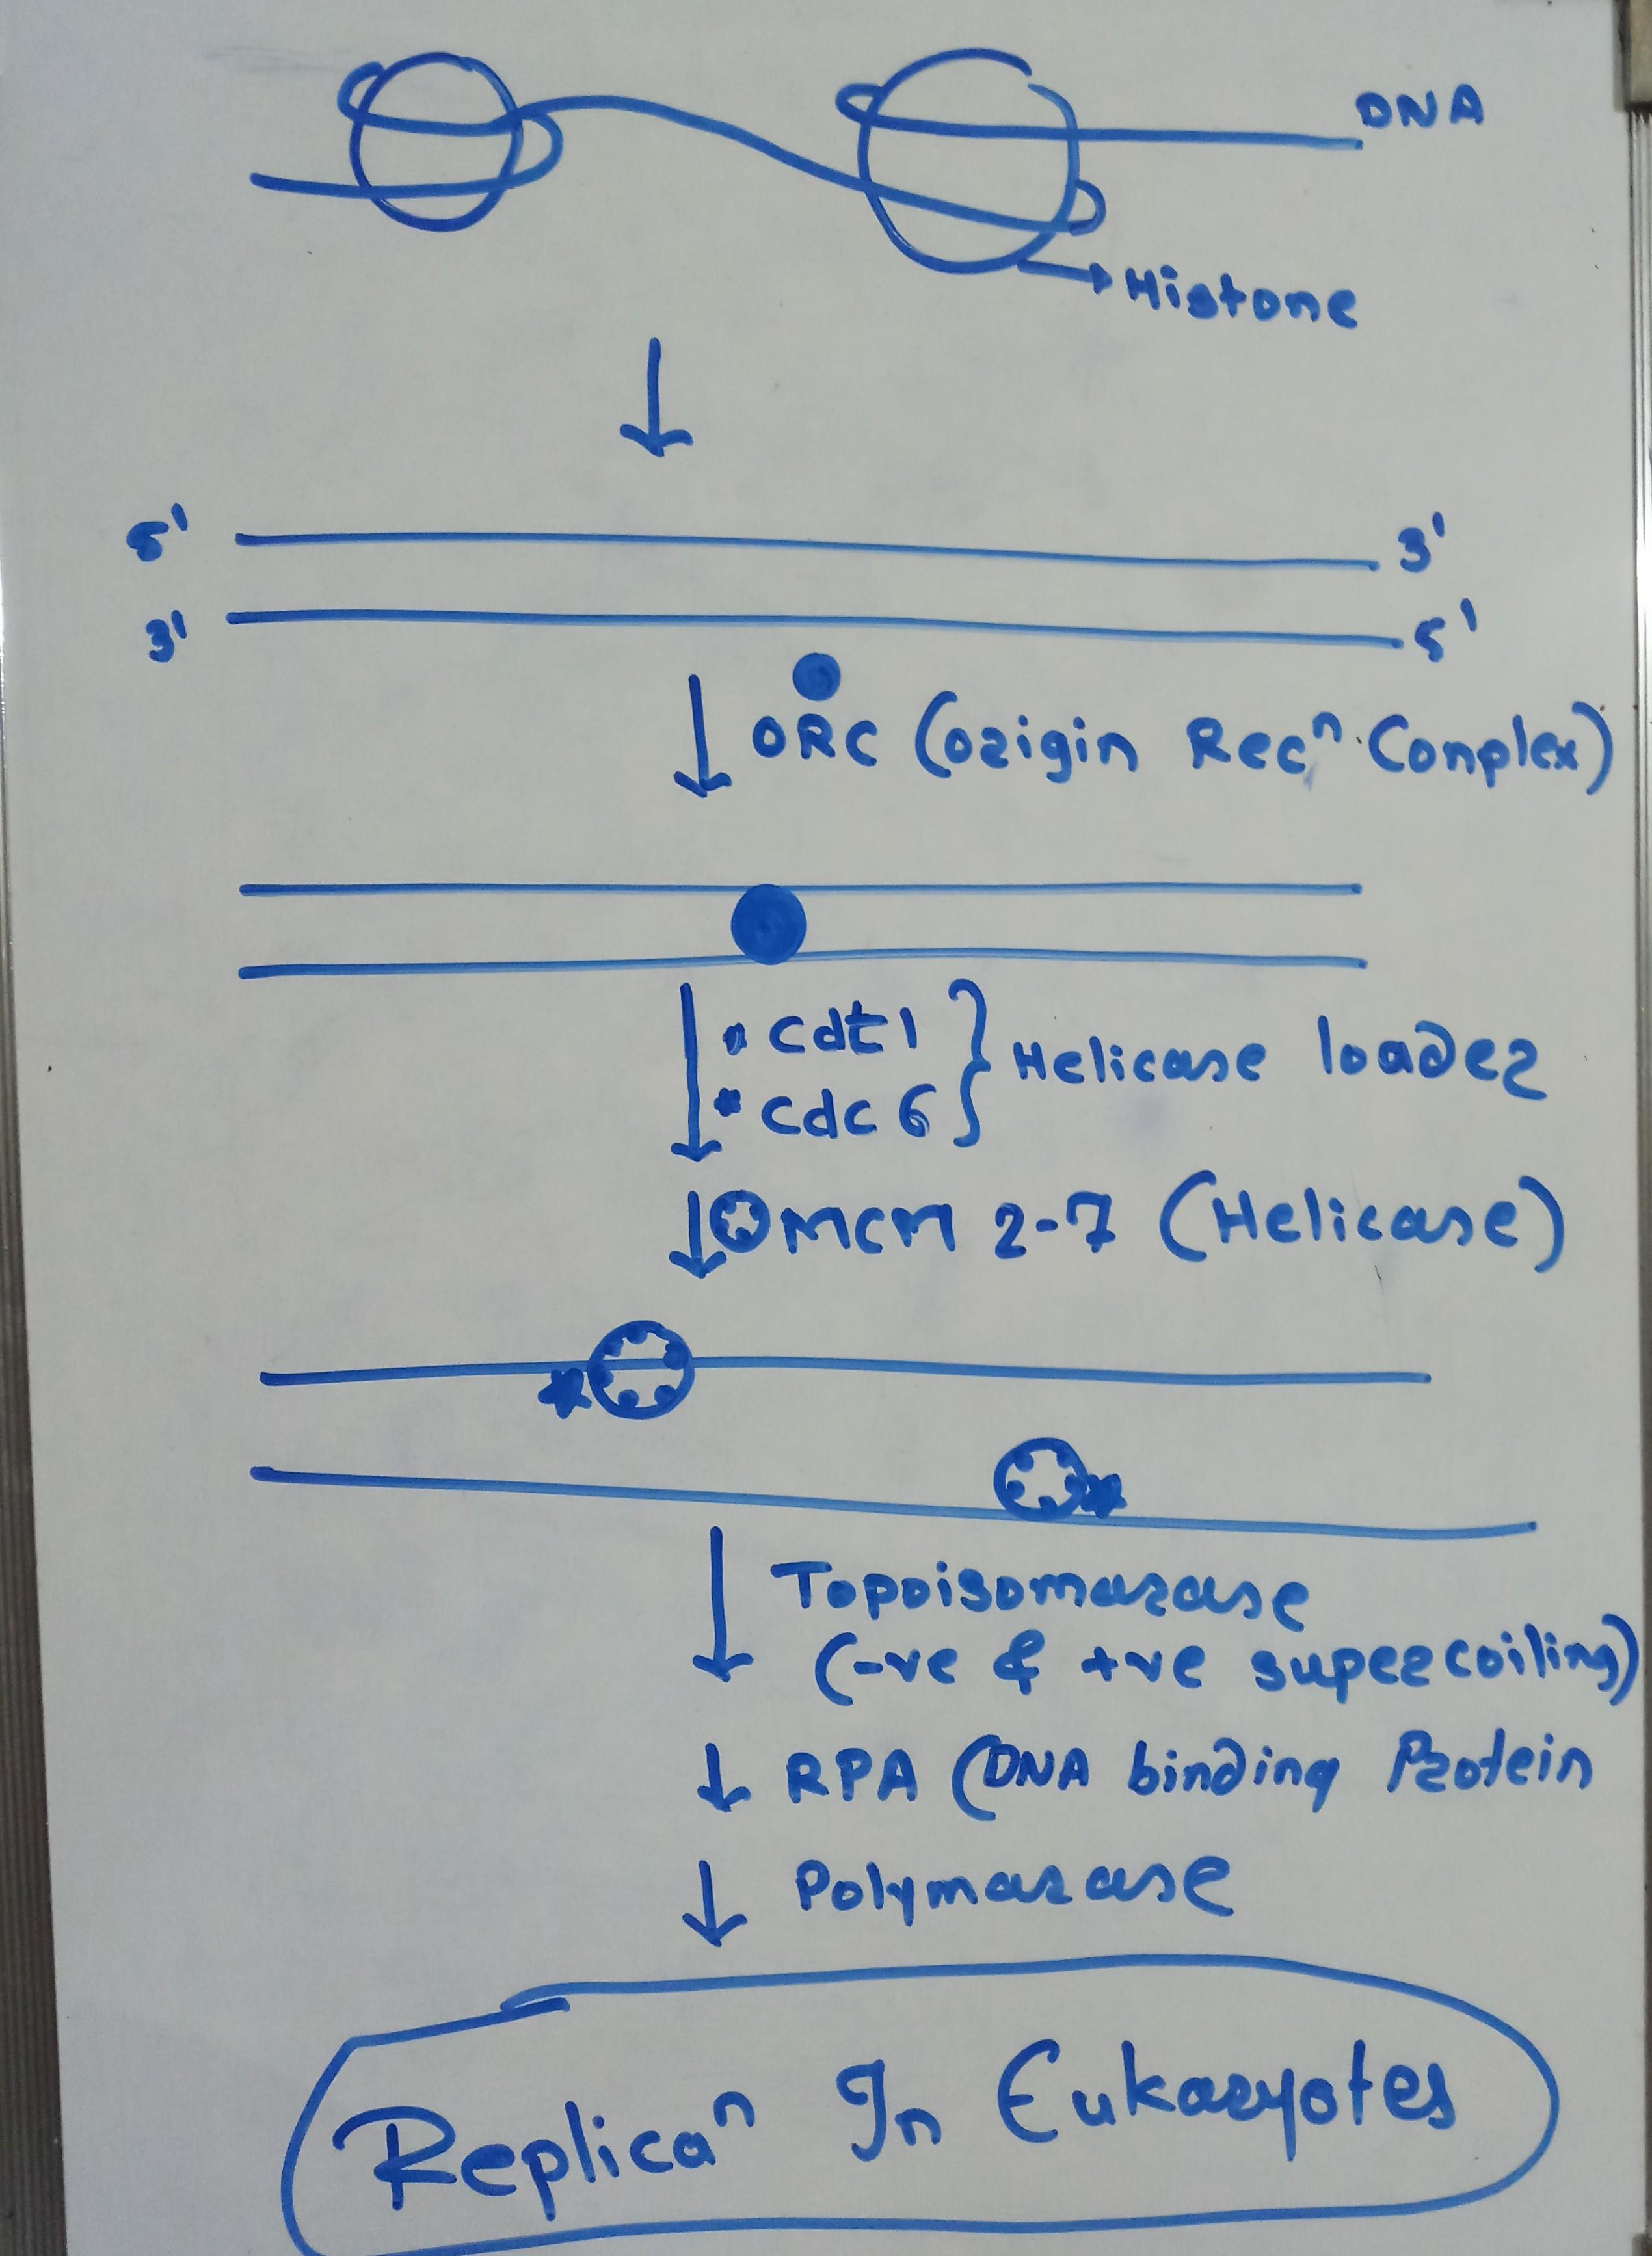 DNA
Histone
5' 3'
3' 5'
ORC (Origin Recⁿ. Conplex)
• Cdt1
* Cdc 6 } Helicase loader
MCM 2-7 (Helicase)
Topoisomarase
(-ve & +ve supercoiling)
RPA (DNA binding Protein
Polymarase
Replicaⁿ In Eukaryotes